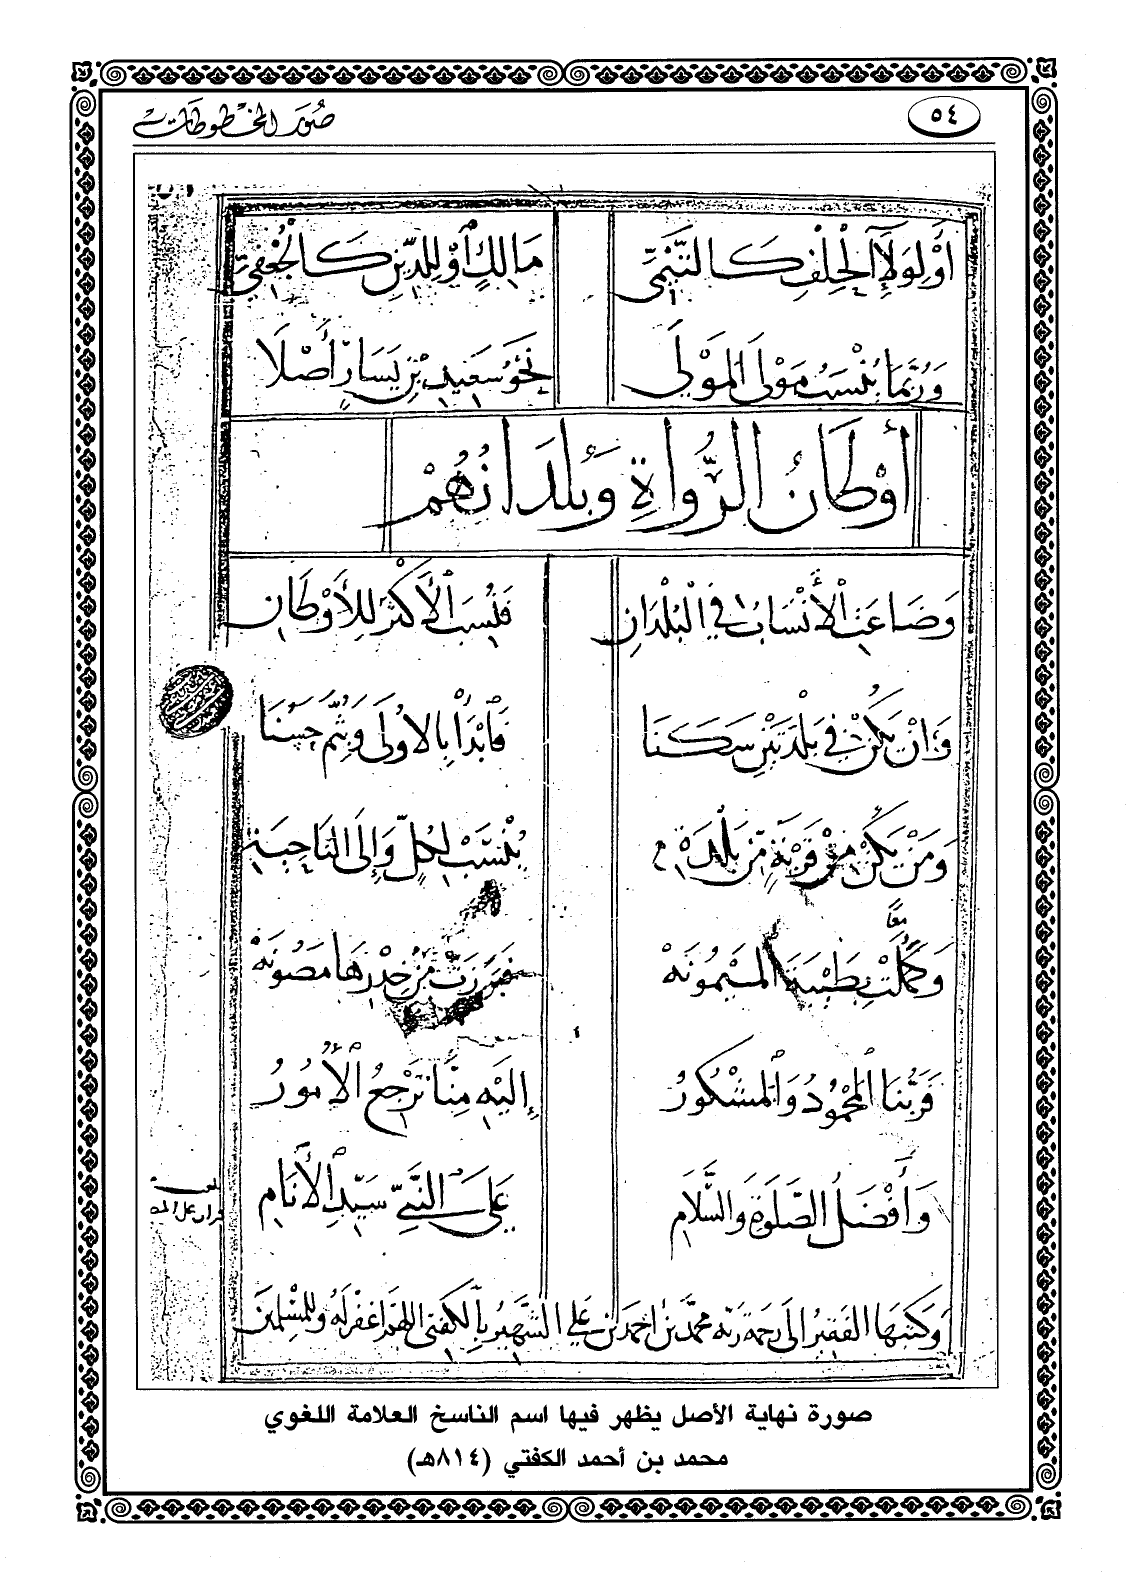 ٥٤
صور المخطوطات
أَوْ لِوَلَاءِ الْحِلْفِ كَالتَّيْمِيِّ مَالِكٍ أَوْ لِلدِّينِ كَالْجُعْفِيِّ
وَرُبَّمَا يُنْسَبُ مَوْلَى الْمَوْلَى نَحْوُ سَعِيدِ بْنِ يَسَارٍ أَصْلَا
أَوْطَانُ الرُّوَاةِ وَبُلْدَانُهُمْ
وَضَاعَتِ الْأَنْسَابُ فِي الْبُلْدَانِ فَنُسِبَ الْأَكْثَرُ لِلْأَوْطَانِ
وَإِنْ يَكُنْ فِي بَلْدَتَيْنِ سَكَنَا فَابْدَأْ بِالْأُولَى وَبِثُمَّ حَسُنَا
وَمَنْ يَكُنْ مِنْ قَرْيَةٍ مِنْ بَلْدَةِ يُنْسَبْ لِكُلٍّ وَإِلَى النَّاحِيَةِ
معًا
وَكَمُلَتْ بِطَيْبَةَ الْمَيْمُونَهْ فَبَرَزَتْ مِنْ خِدْرِهَا مَصُونَهْ
فَرَبُّنَا الْمَحْمُودُ وَالْمَشْكُورُ إِلَيْهِ مِنَّا تَرْجِعُ الْأُمُورُ
وَأَفْضَلُ الصَّلٰوةِ وَالسَّلَامِ عَلَى النَّبِيِّ سَيِّدِ الْأَنَامِ
وَكَتَبَهَا الْفَقِيرُ إِلَى رَحْمَةِ رَبِّهِ مُحَمَّدُ بْنُ أَحْمَدَ بْنِ عَلِيٍّ الشَّهِيرُ بِالْكَفْتِيِّ اللهم اغْفِرْ لَهُ وَلِلْمُسْلِمِينَ
صورة نهاية الأصل يظهر فيها اسم الناسخ العلامة اللغوي
محمد بن أحمد الكفتي (٨١٤هـ)